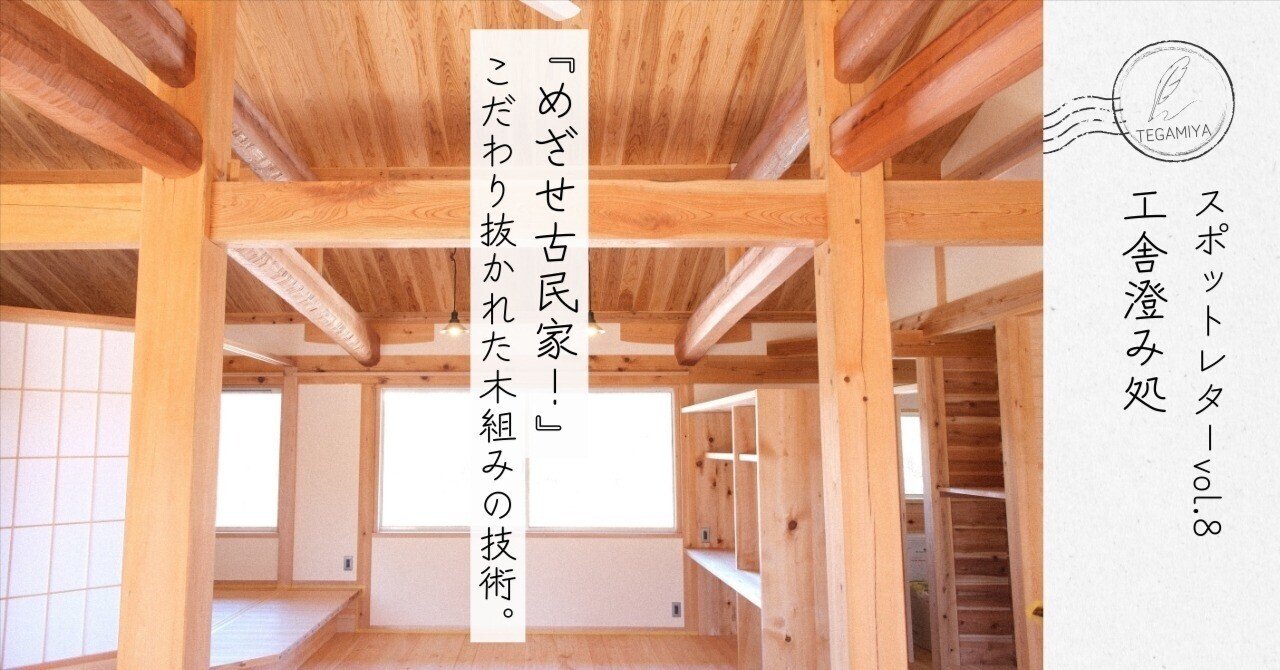 『めざせ古民家！』
こだわり抜かれた木組みの技術。
TEGAMIYA
スポットレターvol.8
工舎澄み処